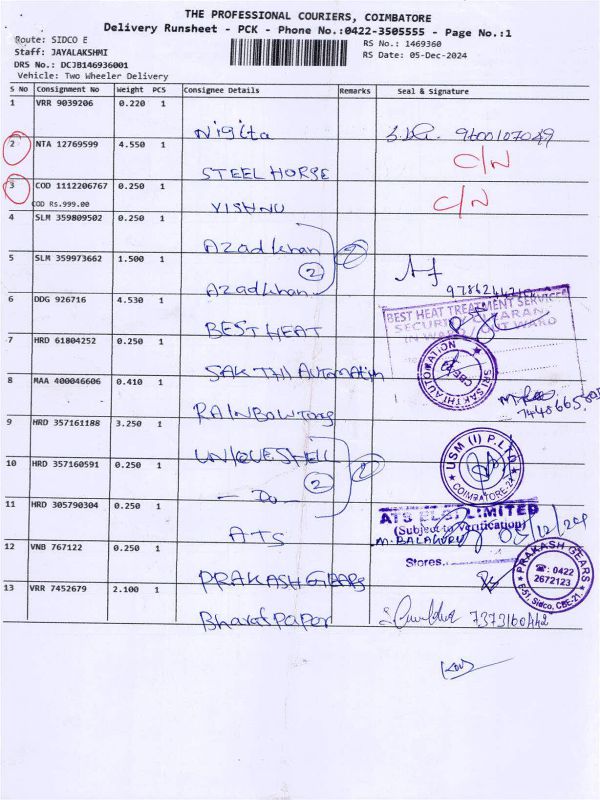 THE PROFESSIONAL COURIERS, COIMBATORE
Delivery Runsheet - PCK - Phone No.:0422-3505555 - Page No.:1
Route: SIDCO E
RS No.: 1469360
Staff: JAYALAKSHMI
RS Date: 05-Dec-2024
DRS No.: DCJB146936001
Vehicle: Two Wheeler Delivery
S No Consignment No Weight PCS Consignee Details Remarks Seal & Signature
1 VRR 9039206 0.220 1
Nigita 9600107049
2 NTA 12769599 4.550 1
STEEL HORSE C/N
3 COD 1112206767 0.250 1
COD Rs.999.00
VISHNU C/N
4 SLM 359809502 0.250 1
Azad khan
5 SLM 359973662 1.500 1
2 2
Azad khan
6 DDG 926716 4.530 1
BEST HEAT TREATMENT SERVICES
BEST HEAT
7 HRD 61804252 0.250 1
SRI SAKTHI AUTOMATION CBE
SAKTHI Automation
8 MAA 400046606 0.410 1
RAINBOW
9 HRD 357161188 3.250 1
UNIQUE SHELL
USM (I) P.LTD COIMBATORE-21
10 HRD 357160591 0.250 1
2 2
- Do -
11 HRD 305790304 0.250 1
LIMITED
(Subject to Verification)
M. BALAGURU
ATS
Stores
12 VNB 767122 0.250 1
PRAKASH GEARS
PRAKASH GEARS ☎: 0422 2672123 E-51, Sidco, CBE-21.
13 VRR 7452679 2.100 1
Bharat Paper 7373160442